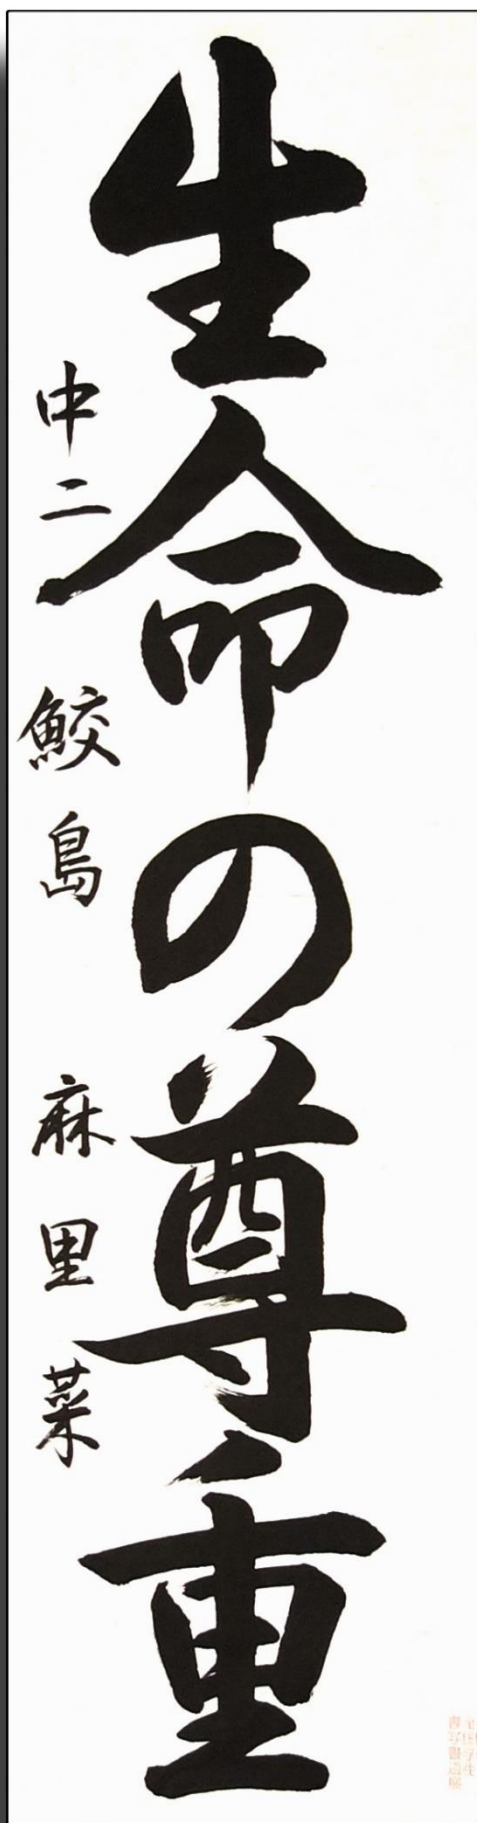 生命の尊重
中二 鮫島 麻里菜